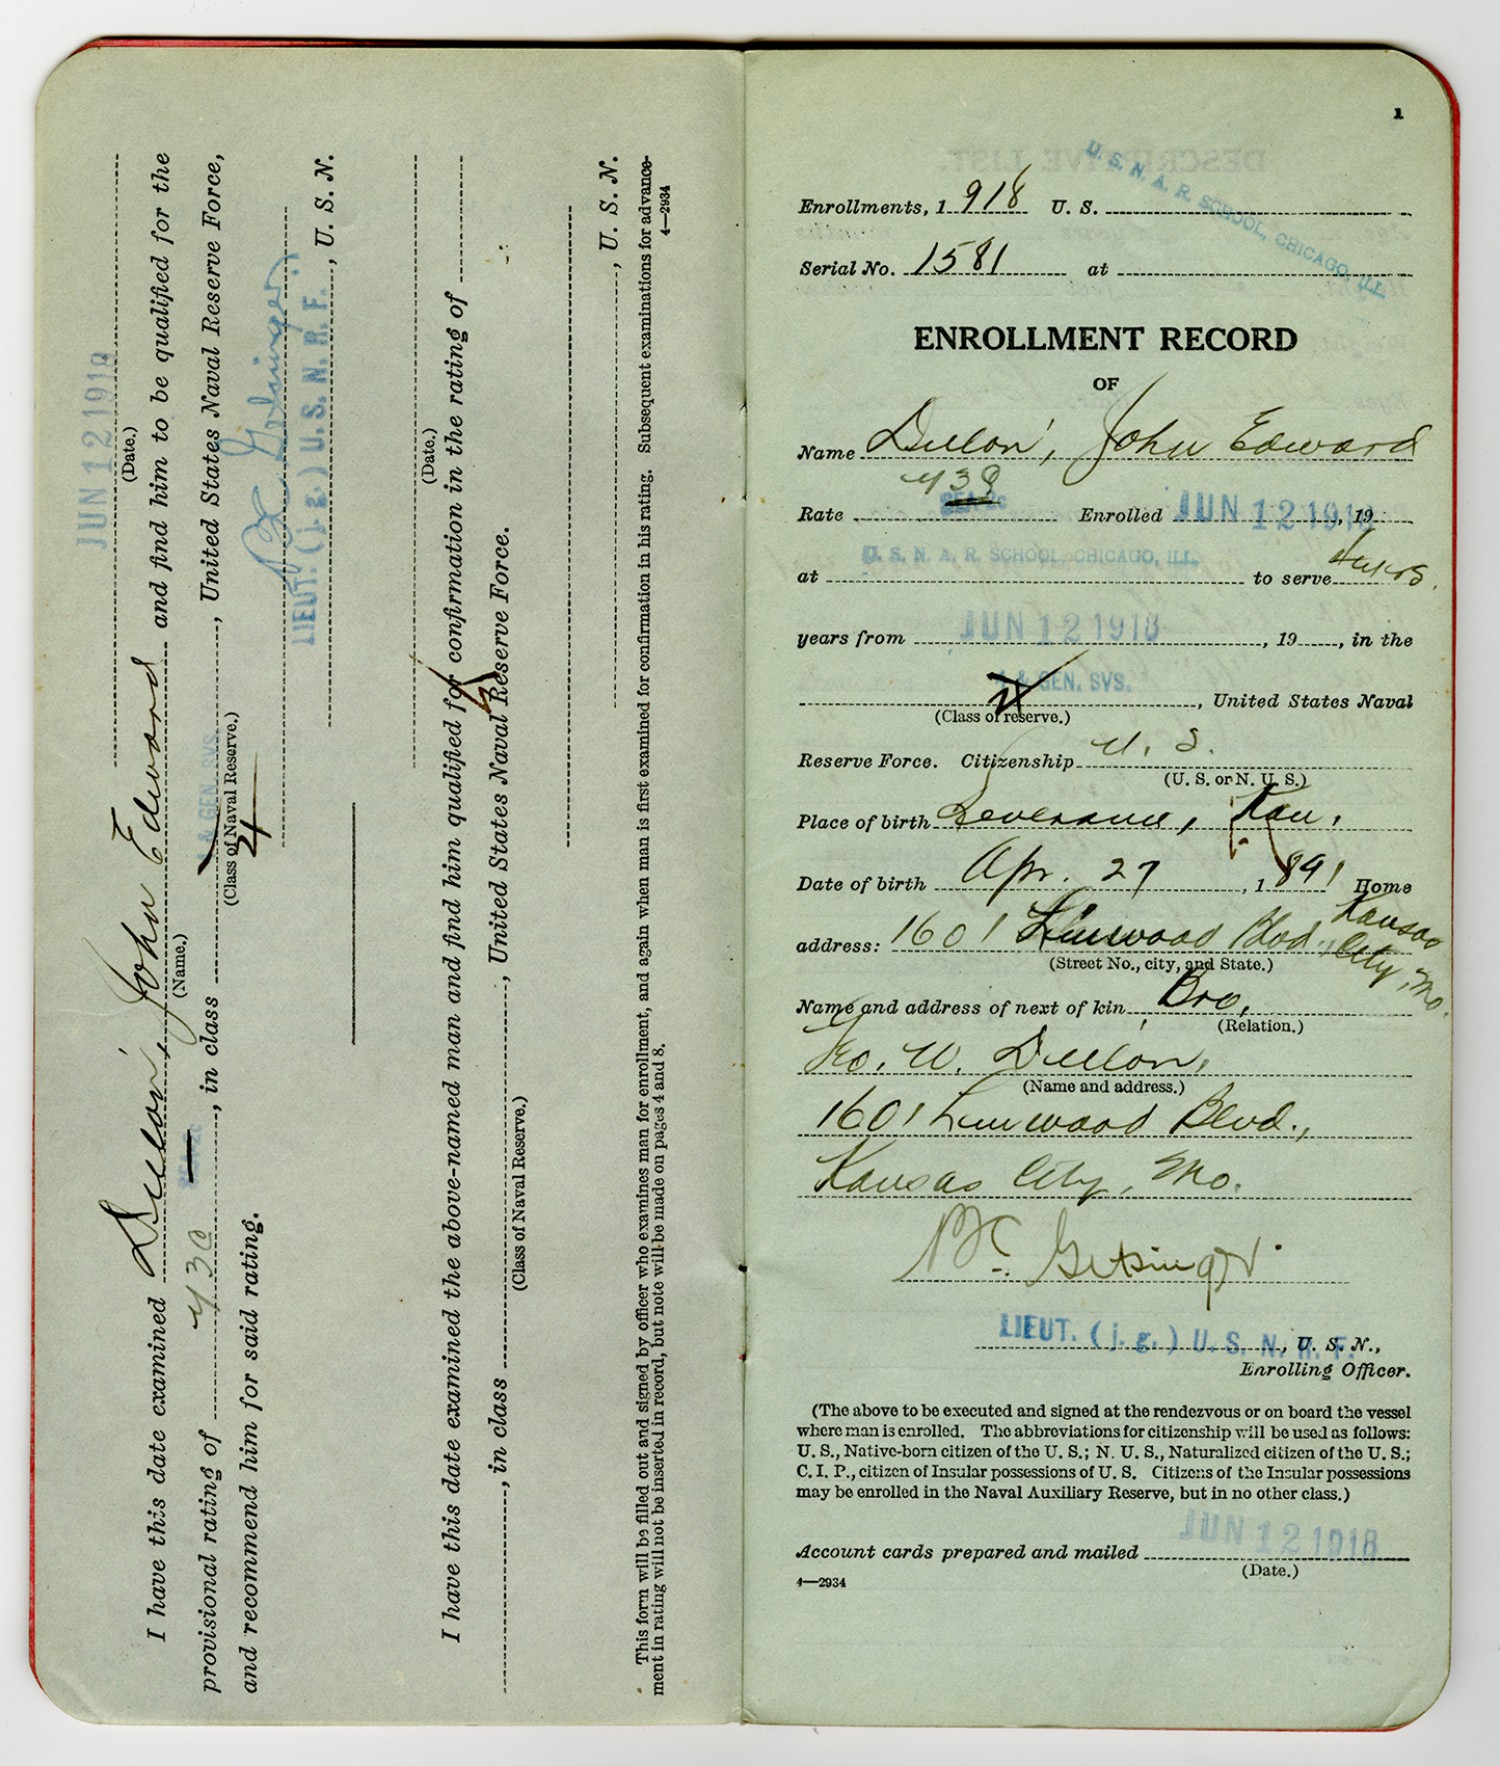 JUN 12 1918
(Date.)
I have this date examined Dillon, John Edward and find him to be qualified for the
(Name.)
provisional rating of Y3C, in class 4, United States Naval Reserve Force,
(Class of Naval Reserve.)
and recommend him for said rating.
LIEUT. (j. g.) U. S. N. R. F., U. S. N.
(Date.)
I have this date examined the above-named man and find him qualified for confirmation in the rating of
, in class , United States Naval Reserve Force.
(Class of Naval Reserve.)
, U. S. N.
This form will be filled out and signed by officer who examines man for enrollment, and again when man is first examined for confirmation in his rating. Subsequent examinations for advance-
ment in rating will not be inserted in record, but note will be made on pages 4 and 8.
4—2934
1
U. S. N. A. R. SCHOOL, CHICAGO, ILL.
Enrollments, 1918 U. S.
Serial No. 1581 at
ENROLLMENT RECORD
OF
Name Dillon, John Edward
Rate Enrolled JUN 12 1918, 19
at U. S. N. A. R. SCHOOL, CHICAGO, ILL. to serve
years from JUN 12 1918, 19, in the
4 & GEN. SVS., United States Naval
(Class of reserve.)
Reserve Force. Citizenship U. S.
(U. S. or N. U. S.)
Place of birth Severance, Kan.
Date of birth Apr. 27, 1891 Home
address: 1601 Linwood Blvd., Kansas City, Mo.
(Street No., city, and State.)
Name and address of next of kin, Bro.
(Relation.)
Geo. W. Dillon,
(Name and address.)
1601 Linwood Blvd.,
Kansas City, Mo.
LIEUT. (j. g.) U. S. N. R. F., U. S. N.,
Enrolling Officer.
(The above to be executed and signed at the rendezvous or on board the vessel
where man is enrolled. The abbreviations for citizenship will be used as follows:
U. S., Native-born citizen of the U. S.; N. U. S., Naturalized citizen of the U. S.;
C. I. P., citizen of Insular possessions of U. S. Citizens of the Insular possessions
may be enrolled in the Naval Auxiliary Reserve, but in no other class.)
Account cards prepared and mailed JUN 12 1918
(Date.)
4—2934